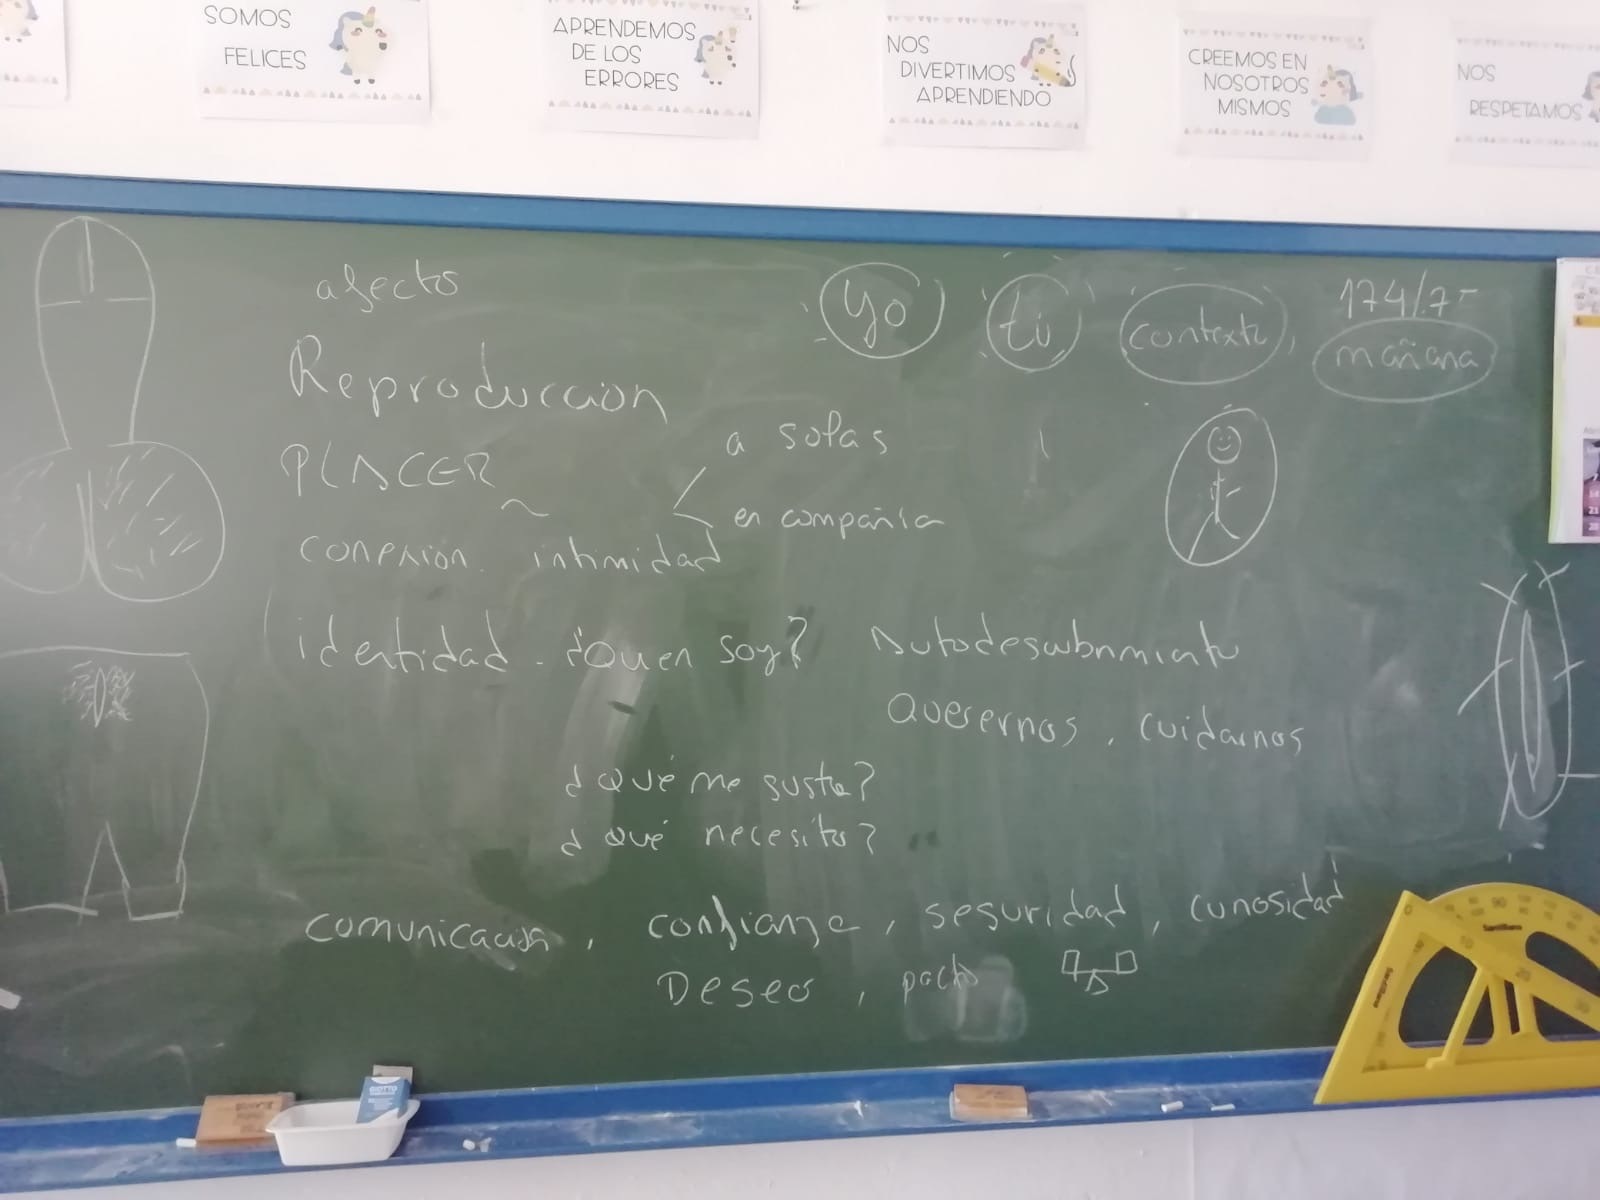 SOMOS
FELICES
APRENDEMOS
DE LOS
ERRORES
NOS
DIVERTIMOS
APRENDIENDO
CREEMOS EN
NOSOTROS
MISMOS
NOS
RESPETAMOS
afecto
yo tú contexto
mañana
Reproducción
PLACER
a solas
en compañía
conexión. intimidad
identidad - ¿Quien soy? Autodescubrimiento
Querernos, cuidarnos
¿Qué me gusta?
¿Qué necesito?
comunicación, confianza, seguridad, curiosidad
Deseo, pacto
Santillana